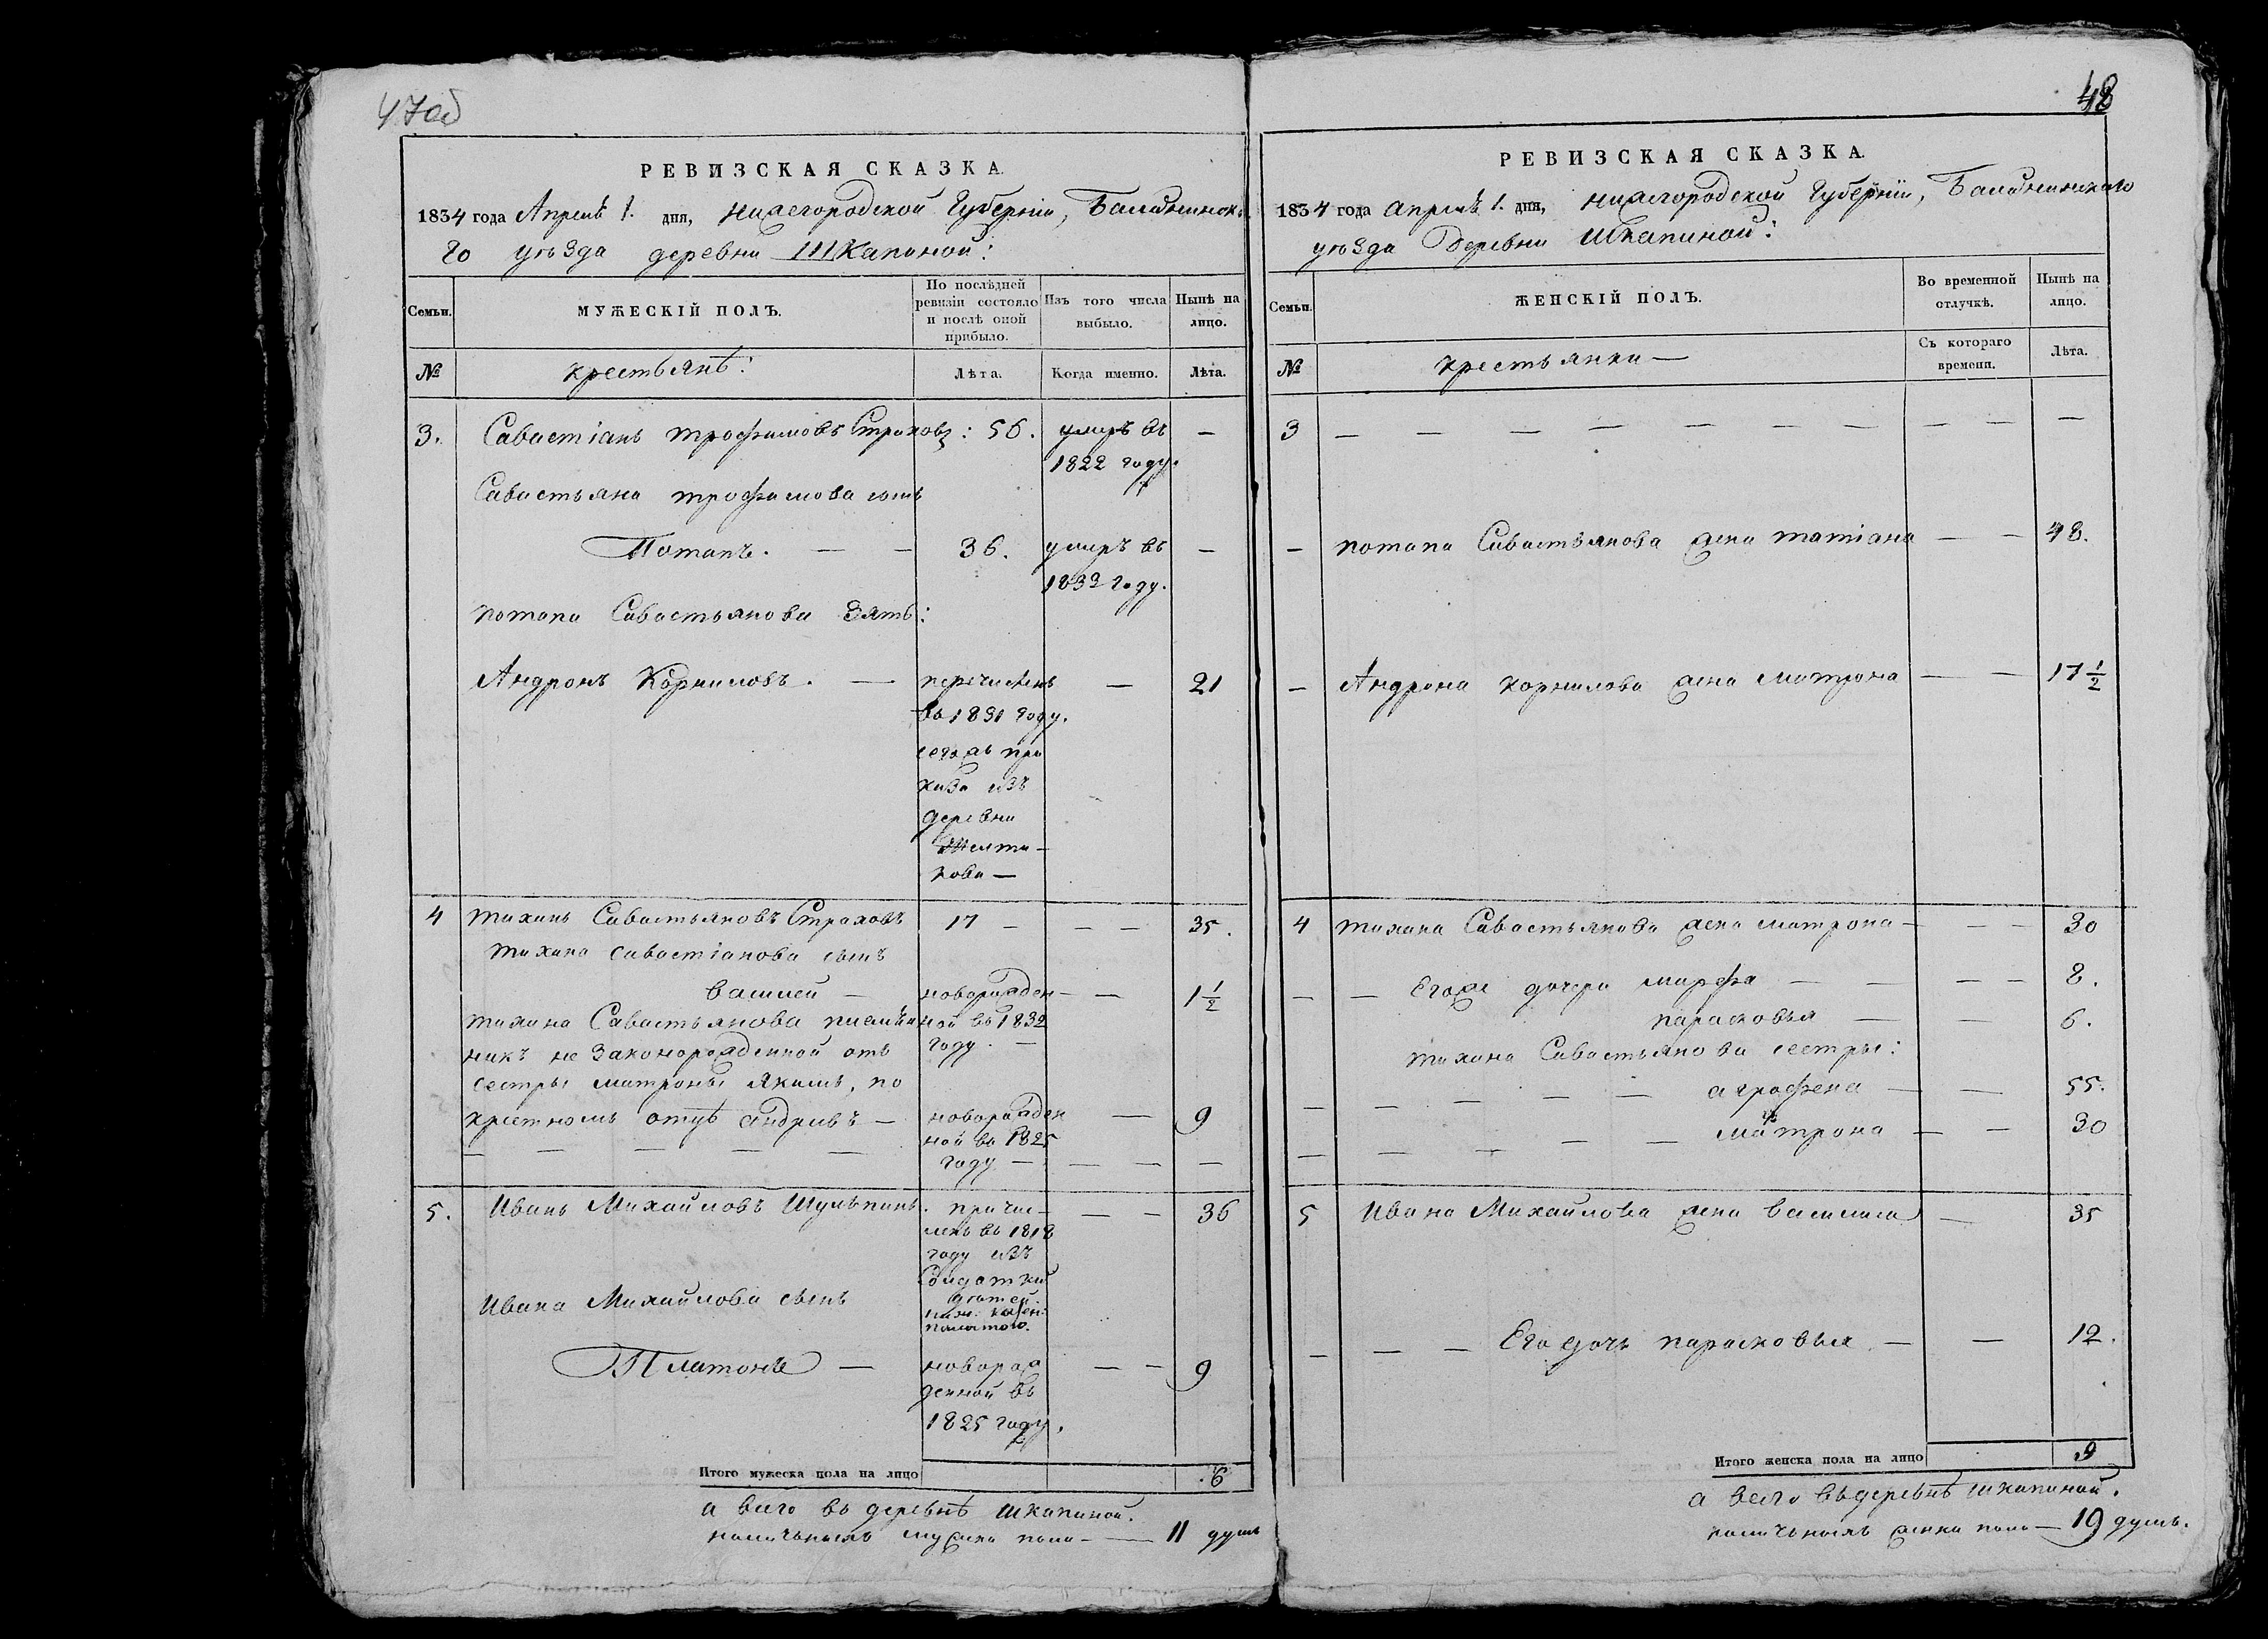 47об
РЕВИЗСКАЯ СКАЗКА.
1834 года Апреля 1. дня, нижегородской Губерніи, Балахнинска
го уѣзда деревни Шкапиной:
Семьи.
МУЖЕСКІЙ ПОЛЪ.
По послѣдней ревизіи состояло и послѣ оной прибыло.
Изъ того числа выбыло.
Нынѣ на лицо.
№
крестьянѣ:
Лѣта.
Когда именно.
Лѣта.
3. Савастіанъ трофимовъ Страховъ: 56. умръ въ —
1822 году.
Савастьяна трофимова сынъ
Потапъ. — — 36. умръ въ —
1833 году.
потапа Савастьянова Зять:
Андронъ Корниловъ. — перечисленъ — 21
въ 1831 году.
сегожъ при
каза изъ
деревни
Желти-
кова —
4 тихонъ Савастьяновъ Страховъ 17 — — — 35.
тихона савастіанова сынъ
василей — новорожден- — 1 1/2
ной въ 1832
году. —
тихона Савастьянова племян
никъ не Законорожденной отъ
сестры матроны Якимъ, по
крестномъ отцѣ андреевъ — новорожден — 9
ной въ 1825
— — — — — году — — — —
5. Иванъ Михайловъ Шульпинъ. причис- — — 36
ленъ въ 1818
году изъ
Солдатских
детей
ниж: казен:
палатою.
Ивана Михайлова сынъ
Платонъ — новорож — — 9
денной въ
1825 году.
Итого мужеска пола на лицо .6
а всего въ деревнѣ шкапиной.
наличныхъ мужска пола — 11 душъ
48
РЕВИЗСКАЯ СКАЗКА.
1834 года апреля 1. дня, нижегородской Губерніи, Балахнинскаго
уѣзда деревни Шкапиной:
Семьи.
ЖЕНСКІЙ ПОЛЪ.
Во временной отлучкѣ.
Нынѣ на лицо.
№
крестьянки —
Съ котораго времени.
Лѣта.
3 — — — — — — — — — —
— потапа Савастьянова жена татіана — — 48.
— Андрона корнилова жена матрона — — 17 1/2
4 тихона Савастьянова жена матрона — — — 30
— — Егоже дочери марфа — — — — 8.
парасковья — — 6.
тихона Савастьянова сестры:
— — — — — аграфена — — 55.
— — — — — матрона — — 30
5 Ивана Михайлова жена василиса — 35
— — — Его дочь парасковья — — 12.
Итого женска пола на лицо 9
а всего въ деревнѣ шкапиной.
наличныхъ женска пола — 19 душъ.